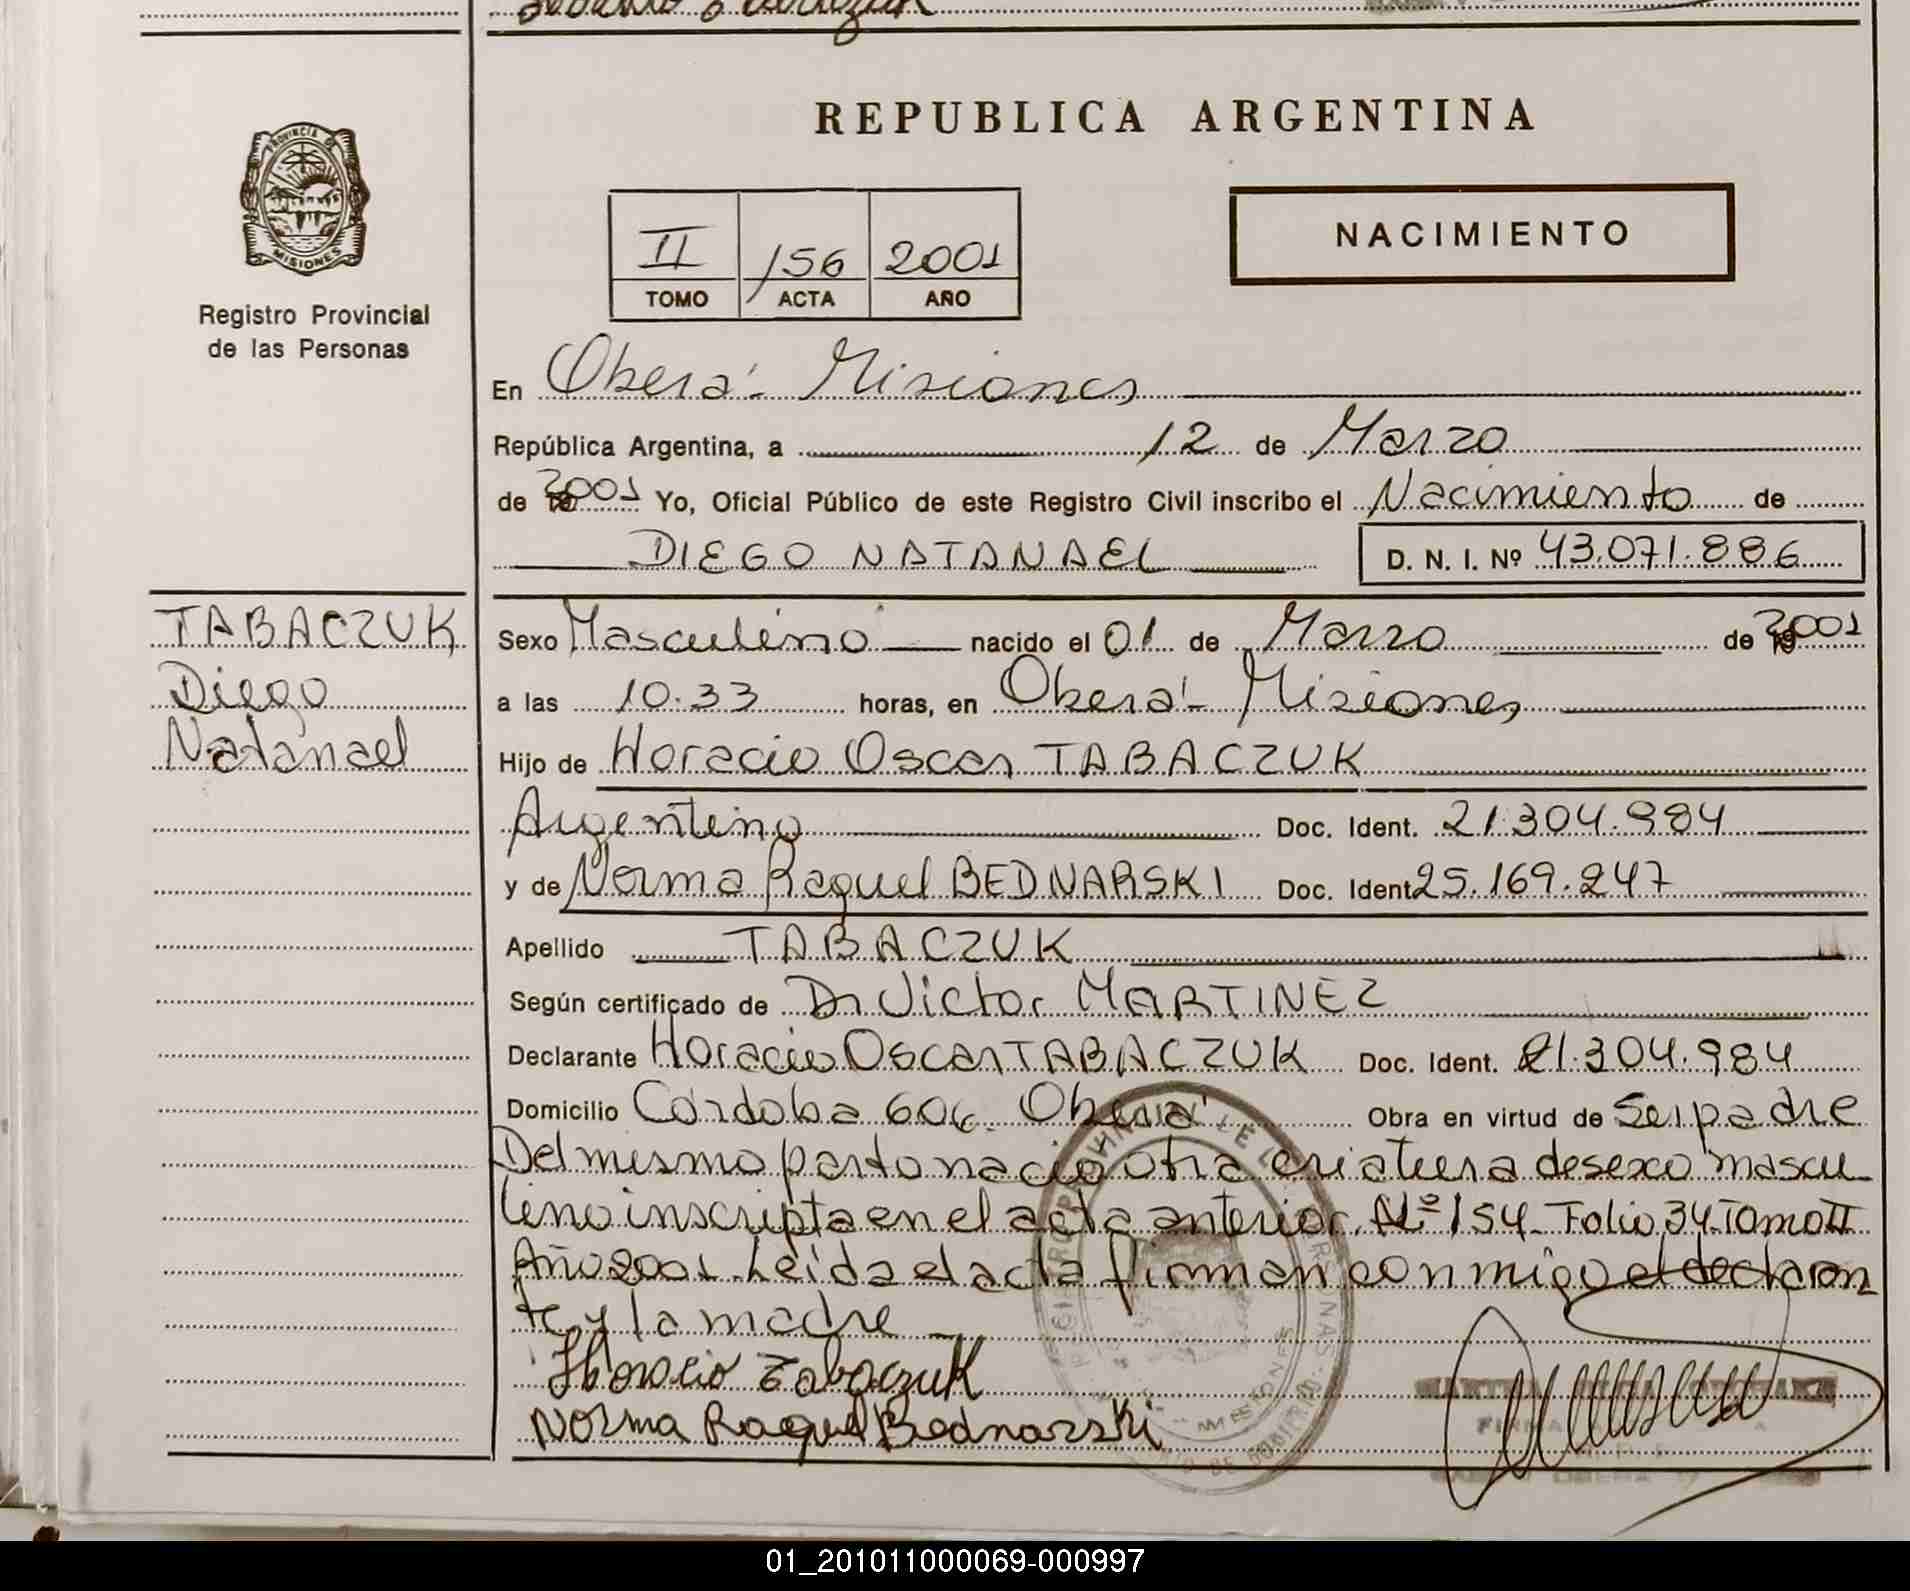 REPUBLICA ARGENTINA
PROVINCIA DE
MISIONES
Registro Provincial
de las Personas
II 156 2001
TOMO ACTA AÑO
NACIMIENTO
En Oberá - Misiones
República Argentina, a 12 de Marzo
de 2001 Yo, Oficial Público de este Registro Civil inscribo el Nacimiento de
DIEGO NATANAEL D. N. I. Nº 43.071.886
TABACZUK
Diego
Natanael
Sexo Masculino nacido el 01 de Marzo de 2001
a las 10.33 horas, en Oberá - Misiones
Hijo de Horacio Oscar TABACZUK
Argentino Doc. Ident. 21.304.984
y de Norma Raquel BEDNARSKI Doc. Ident 25.169.247
Apellido TABACZUK
Según certificado de Dr Victor MARTINEZ
Declarante Horacio Oscar TABACZUK Doc. Ident. 21.304.984
Domicilio Córdoba 606. Oberá Obra en virtud de Ser padre
Del mismo parto nacio otra criatura de sexo mascu-
lino inscripta en el acta anterior Nº 154 - Folio 34 - Tomo II
Año 2001. Leída el acta firman conmigo el declaran
te y la madre
Horacio Tabaczuk
Norma Raquel Bednarski
01_201011000069-000997